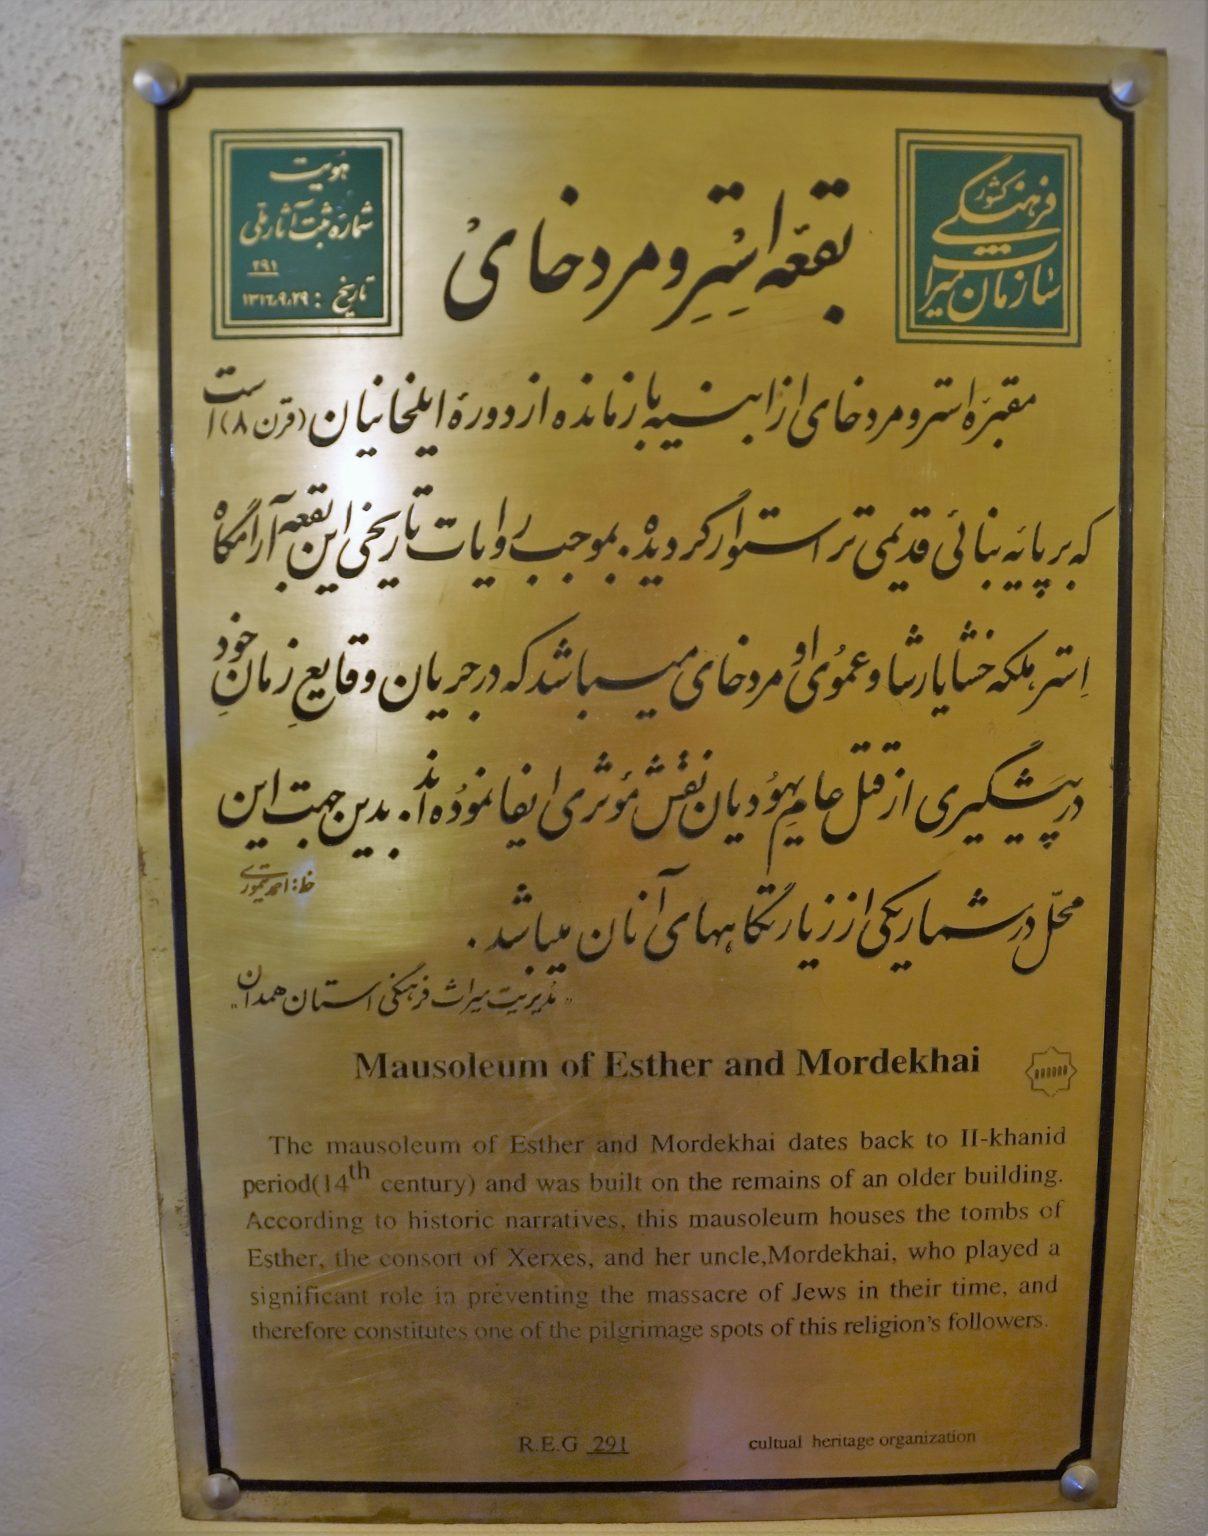 هویت
شماره ثبت آثار ملی
۲۹۱
بقعه استر و مردخای
سازمان میراث فرهنگی کشور
مقبره استر و مردخای از ابنیه بازمانده از دوره ایلخانیان (قرن ۸) است
که بر پایه بنائی قدیمی تر استوار گردیده. بموجب روایات تاریخی این بقعه آرامگاه
اِستر ملکه خشایارشا و عموی او مردخای میباشد که در جریان وقایعِ زمانِ خود
در پیشگیری از قتل عامِ یهودیان نقش مؤثری ایفا نموده اند. بدین جهت این
محلّ در شمار یکی از زیارتگاههای آنان میباشد.
خط: احمد تیموری
"مدیریت میراث فرهنگی استان همدان"
Mausoleum of Esther and Mordekhai
The mausoleum of Esther and Mordekhai dates back to II-khanid
period(14th century) and was built on the remains of an older building.
According to historic narratives, this mausoleum houses the tombs of
Esther, the consort of Xerxes, and her uncle,Mordekhai, who played a
significant role in preventing the massacre of Jews in their time, and
therefore constitutes one of the pilgrimage spots of this religion's followers.
R.E.G 291
cultual heritage organization